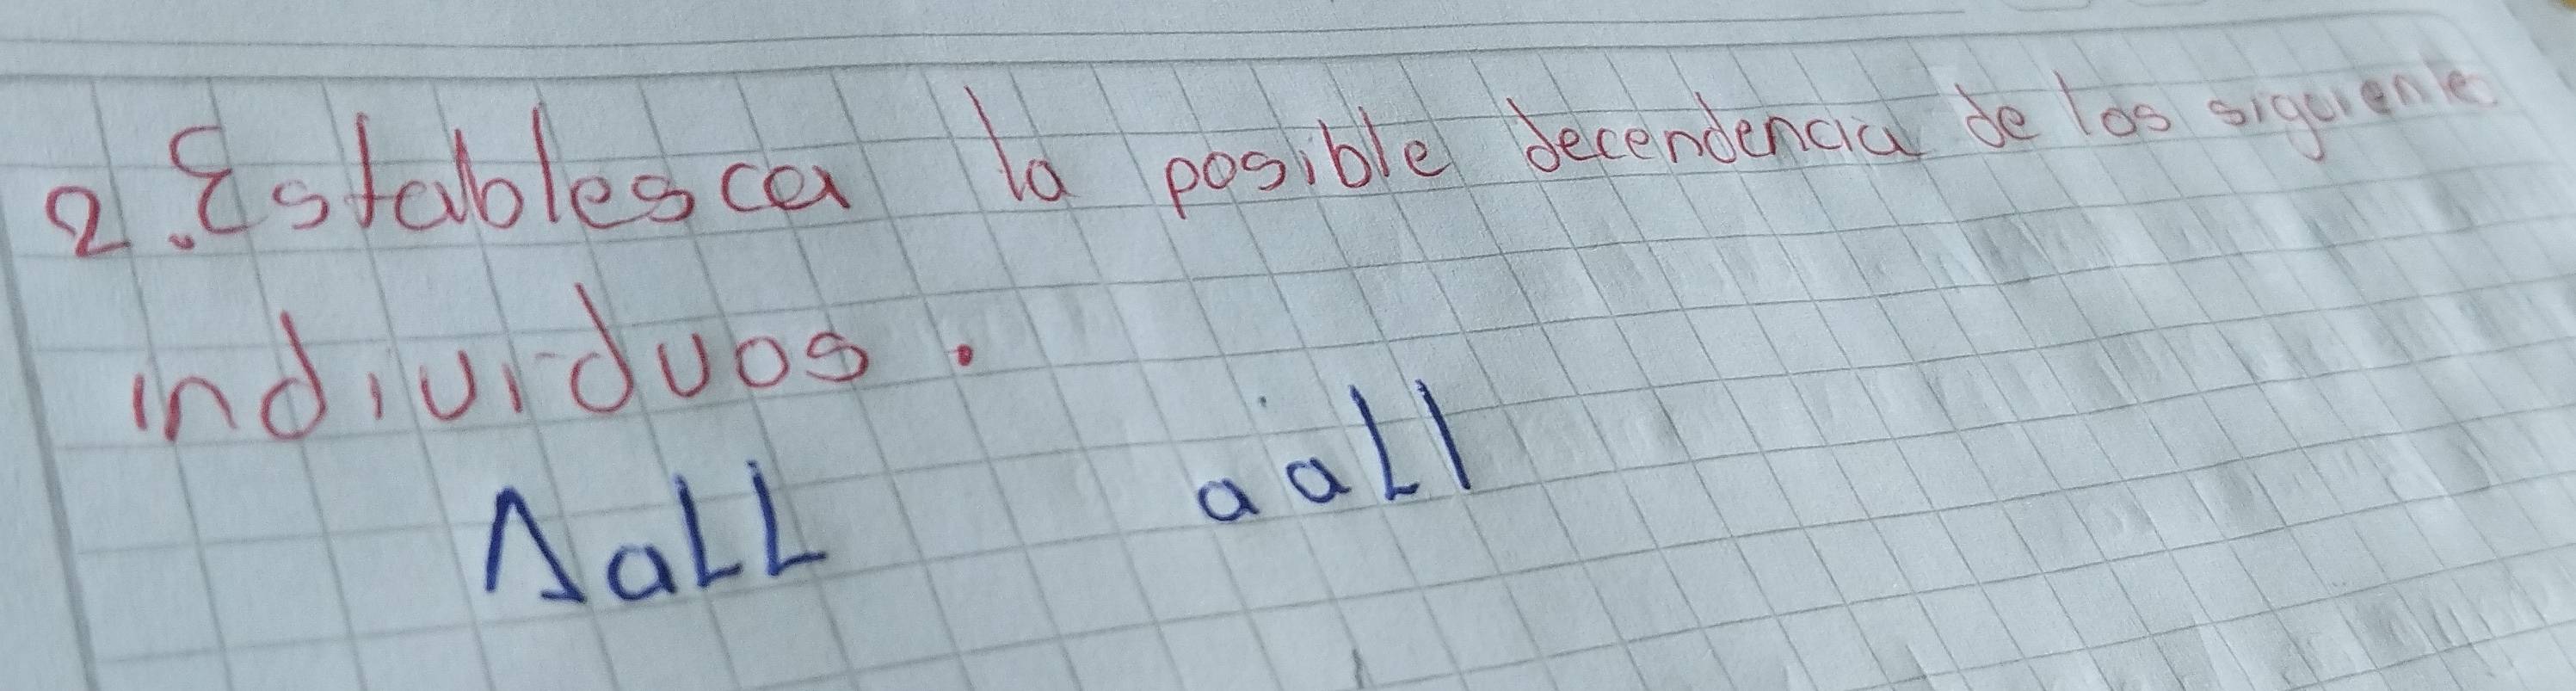 2. Establesca la posible decendencia de los siguiente
individuos.
AaLL aaLl